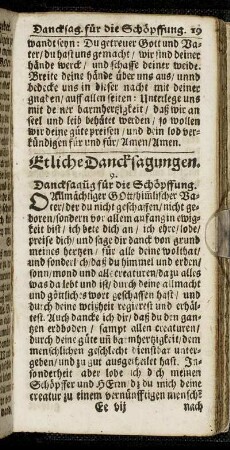 Dancksag. für die Schöpffung. 19
wandt seyn: Du getreuer Gott und Va-
ter/ du hast uns gemacht/ wir sind deiner
hände werck/ und schaffe deiner weide.
Breite deine hände über uns aus/ unnd
bedecke uns in dieser nacht mit deiner
gnaden/ auff allen seiten: Unterlege uns
mit deiner barmhertzigkeit/ daß wir an
seel und leib behütet werden/ so wollen
wir deine güte preisen/ und dein lob ver-
kündigen für und für/ Amen/ Amen.
Etliche Dancksagungen.
9.
Dancksagüg für die Schöpffung.
O Allmächtiger GOtt/ himlischer Va-
ter/ der du nicht geschaffen/ nicht ge-
boren/ sondern vor allem anfang in ewig-
bist/ ich bete dich an/ ich ehre/ lobe/
preise dich/ und sage dir danck von grund
meines hertzen/ für alle deine wolthat/
und sonderlich/ daß du himmel und erden/
sonn/ mond und all creaturen/ da zu alles
was da lebt und ist/ durch deine allmacht
und göttliches wort geschaffen hast/ und
durch deine weisheit regierest und erhäl-
test. Auch dancke ich dir/ daß du den gan-
tzen erdboden/ sampt allen creaturen/
durch deine güte uñ barmhertzigkeit/ dem
menschlichen geschlecht dienstbar unter-
geben/ und zu gut ausgetheilet hast. In-
sonderheit aber lobe ich dich meinen
Schöpffer und HErrn/ dz du mich deine
creatur zu einem vernünfftigen mensch
Ee vij nach